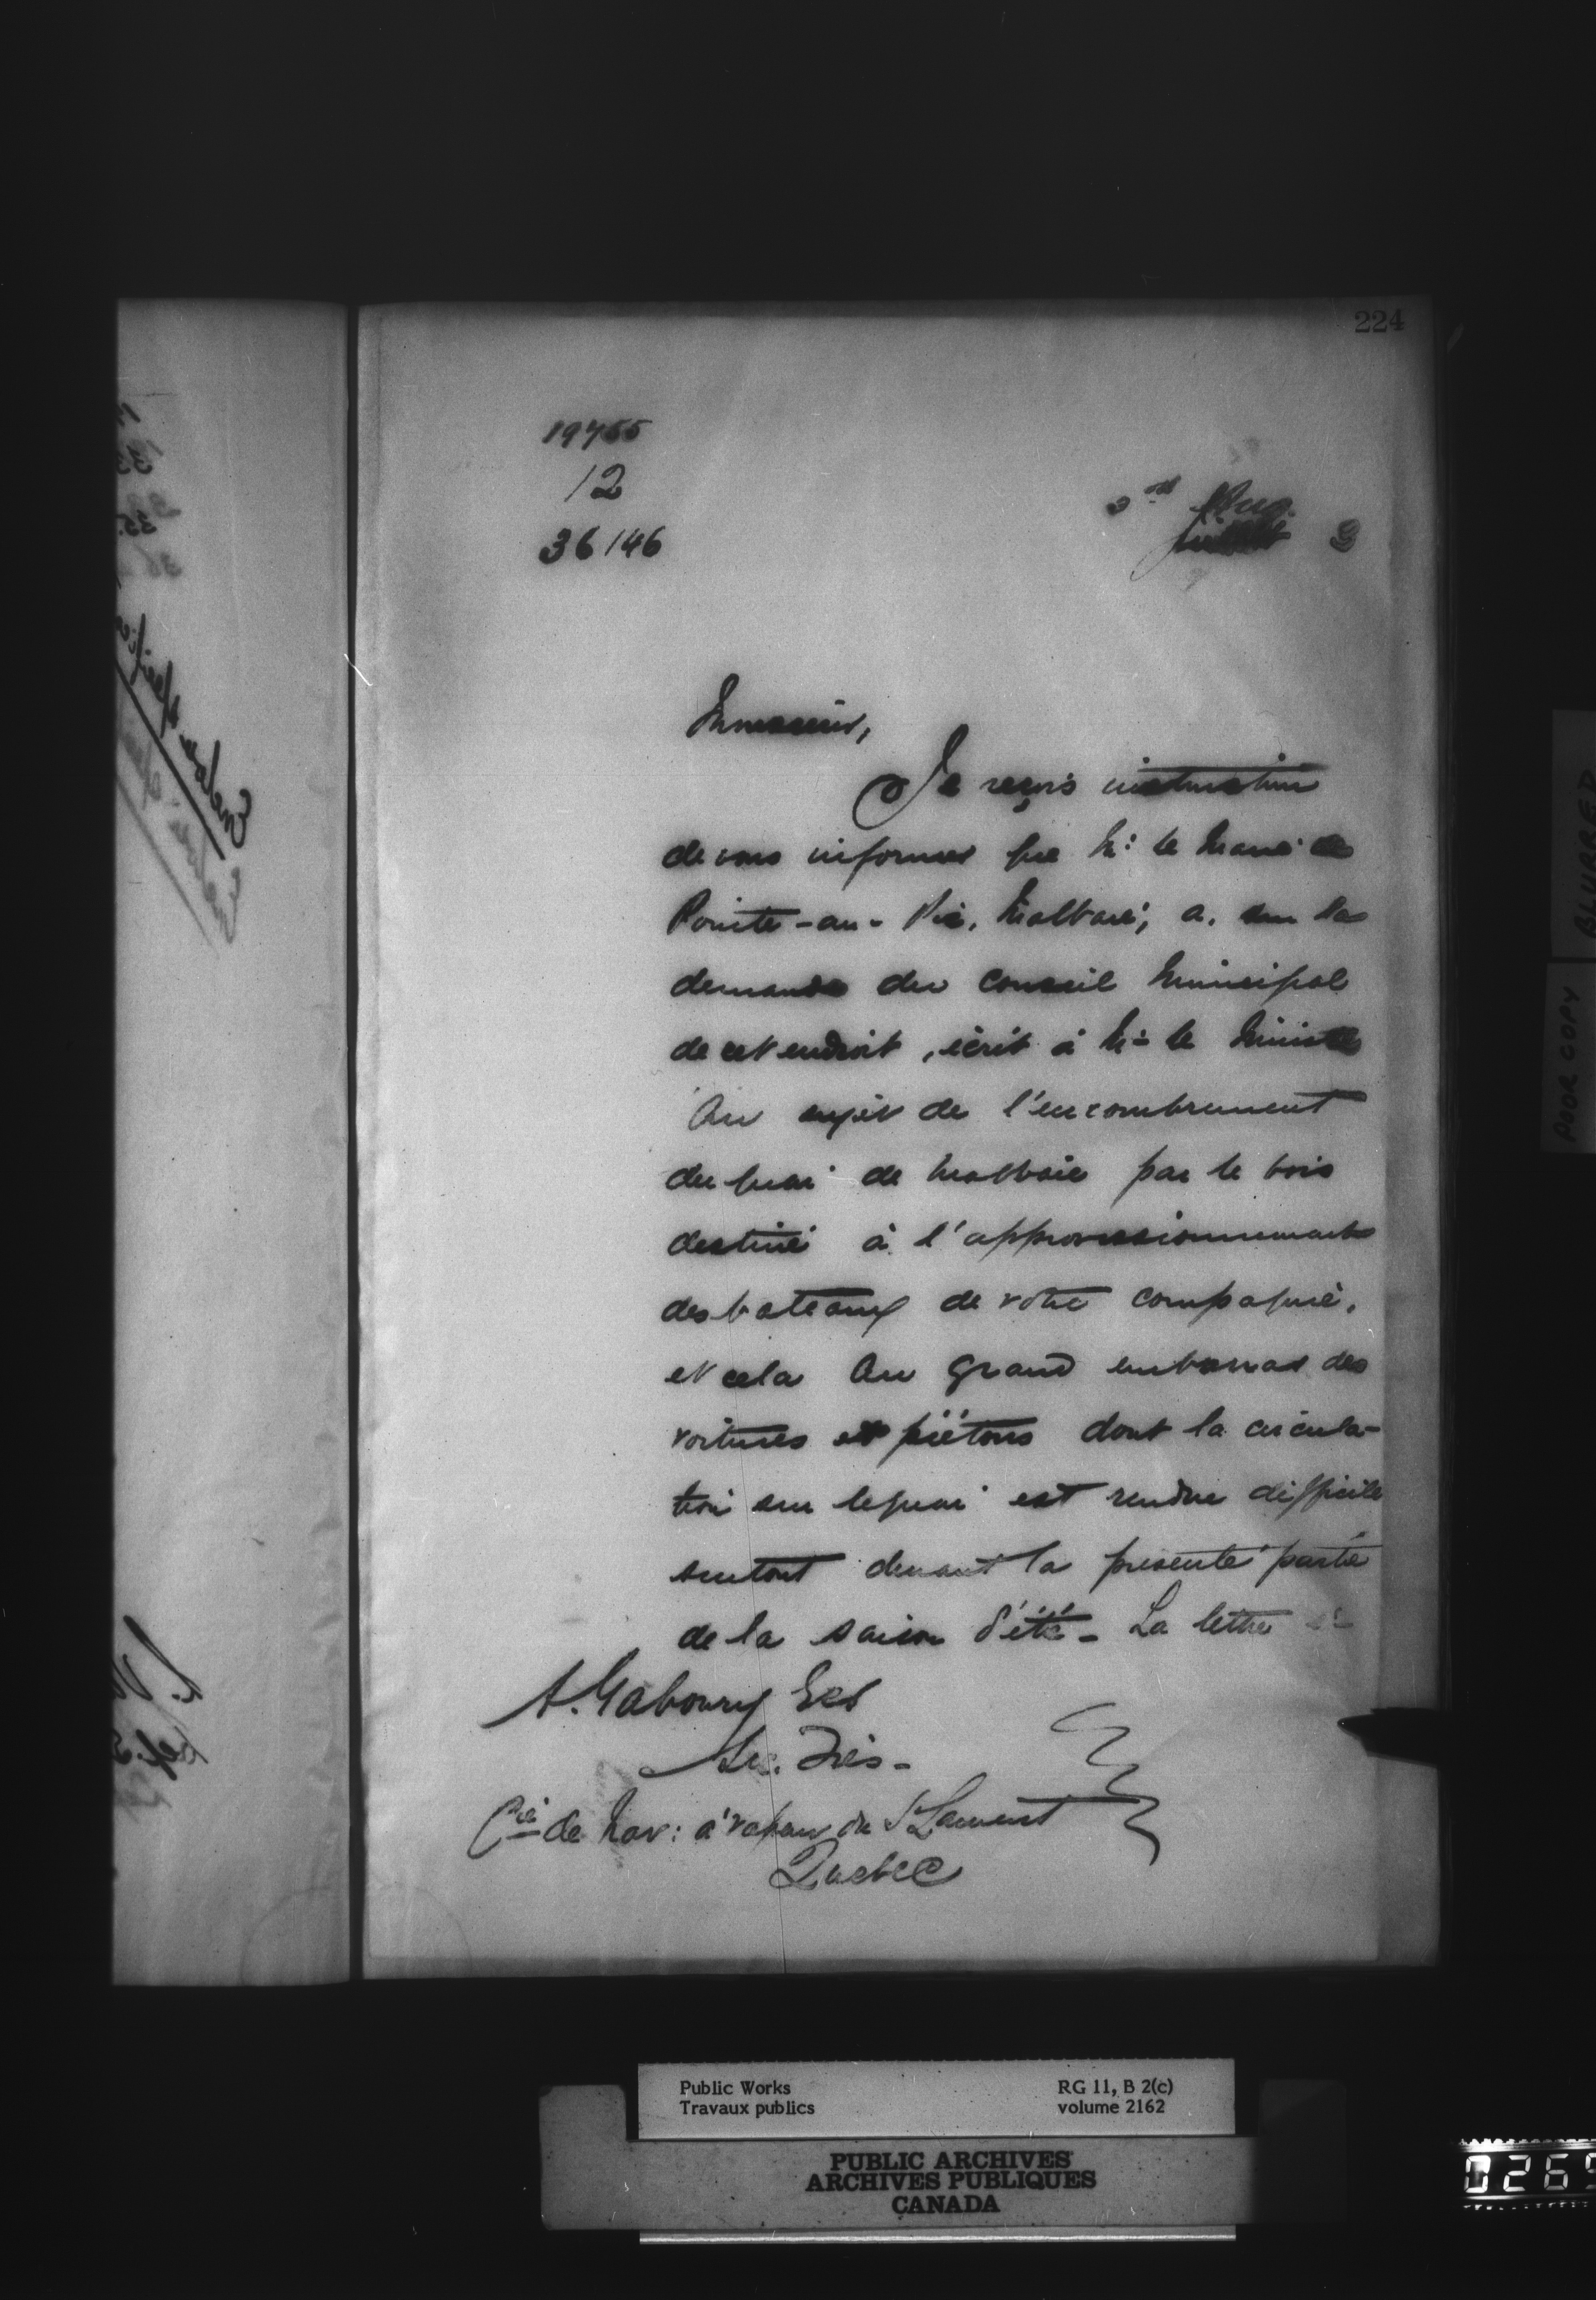 224
19755
12
36146
2nd Aug.
juillet 3
Monsieur,
Je reçois instruction
de vous informer que M: le Maire de
Pointe-au-Pic, Malbaie, a, sur la
demande du Conseil Municipal
de cet endroit, écrit à M- le Ministre
au sujet de l'encombrement
du quai de Malbaie par le bois
destiné à l'approvisionnement
des bateaux de votre compagnie,
et cela au grand embarras des
voitures et piétons dont la circula-
tion sur le quai est rendue difficile
surtout durant la présente partie
de la saison d'été - La lettre
A. Gaboury
Sec. Trés-
Cie de Nav: à vapeur du St Laurent
Quebec
POOR COPY
BLURRED
Public Works
Travaux publics
RG 11, B 2(c)
volume 2162
PUBLIC ARCHIVES
ARCHIVES PUBLIQUES
CANADA